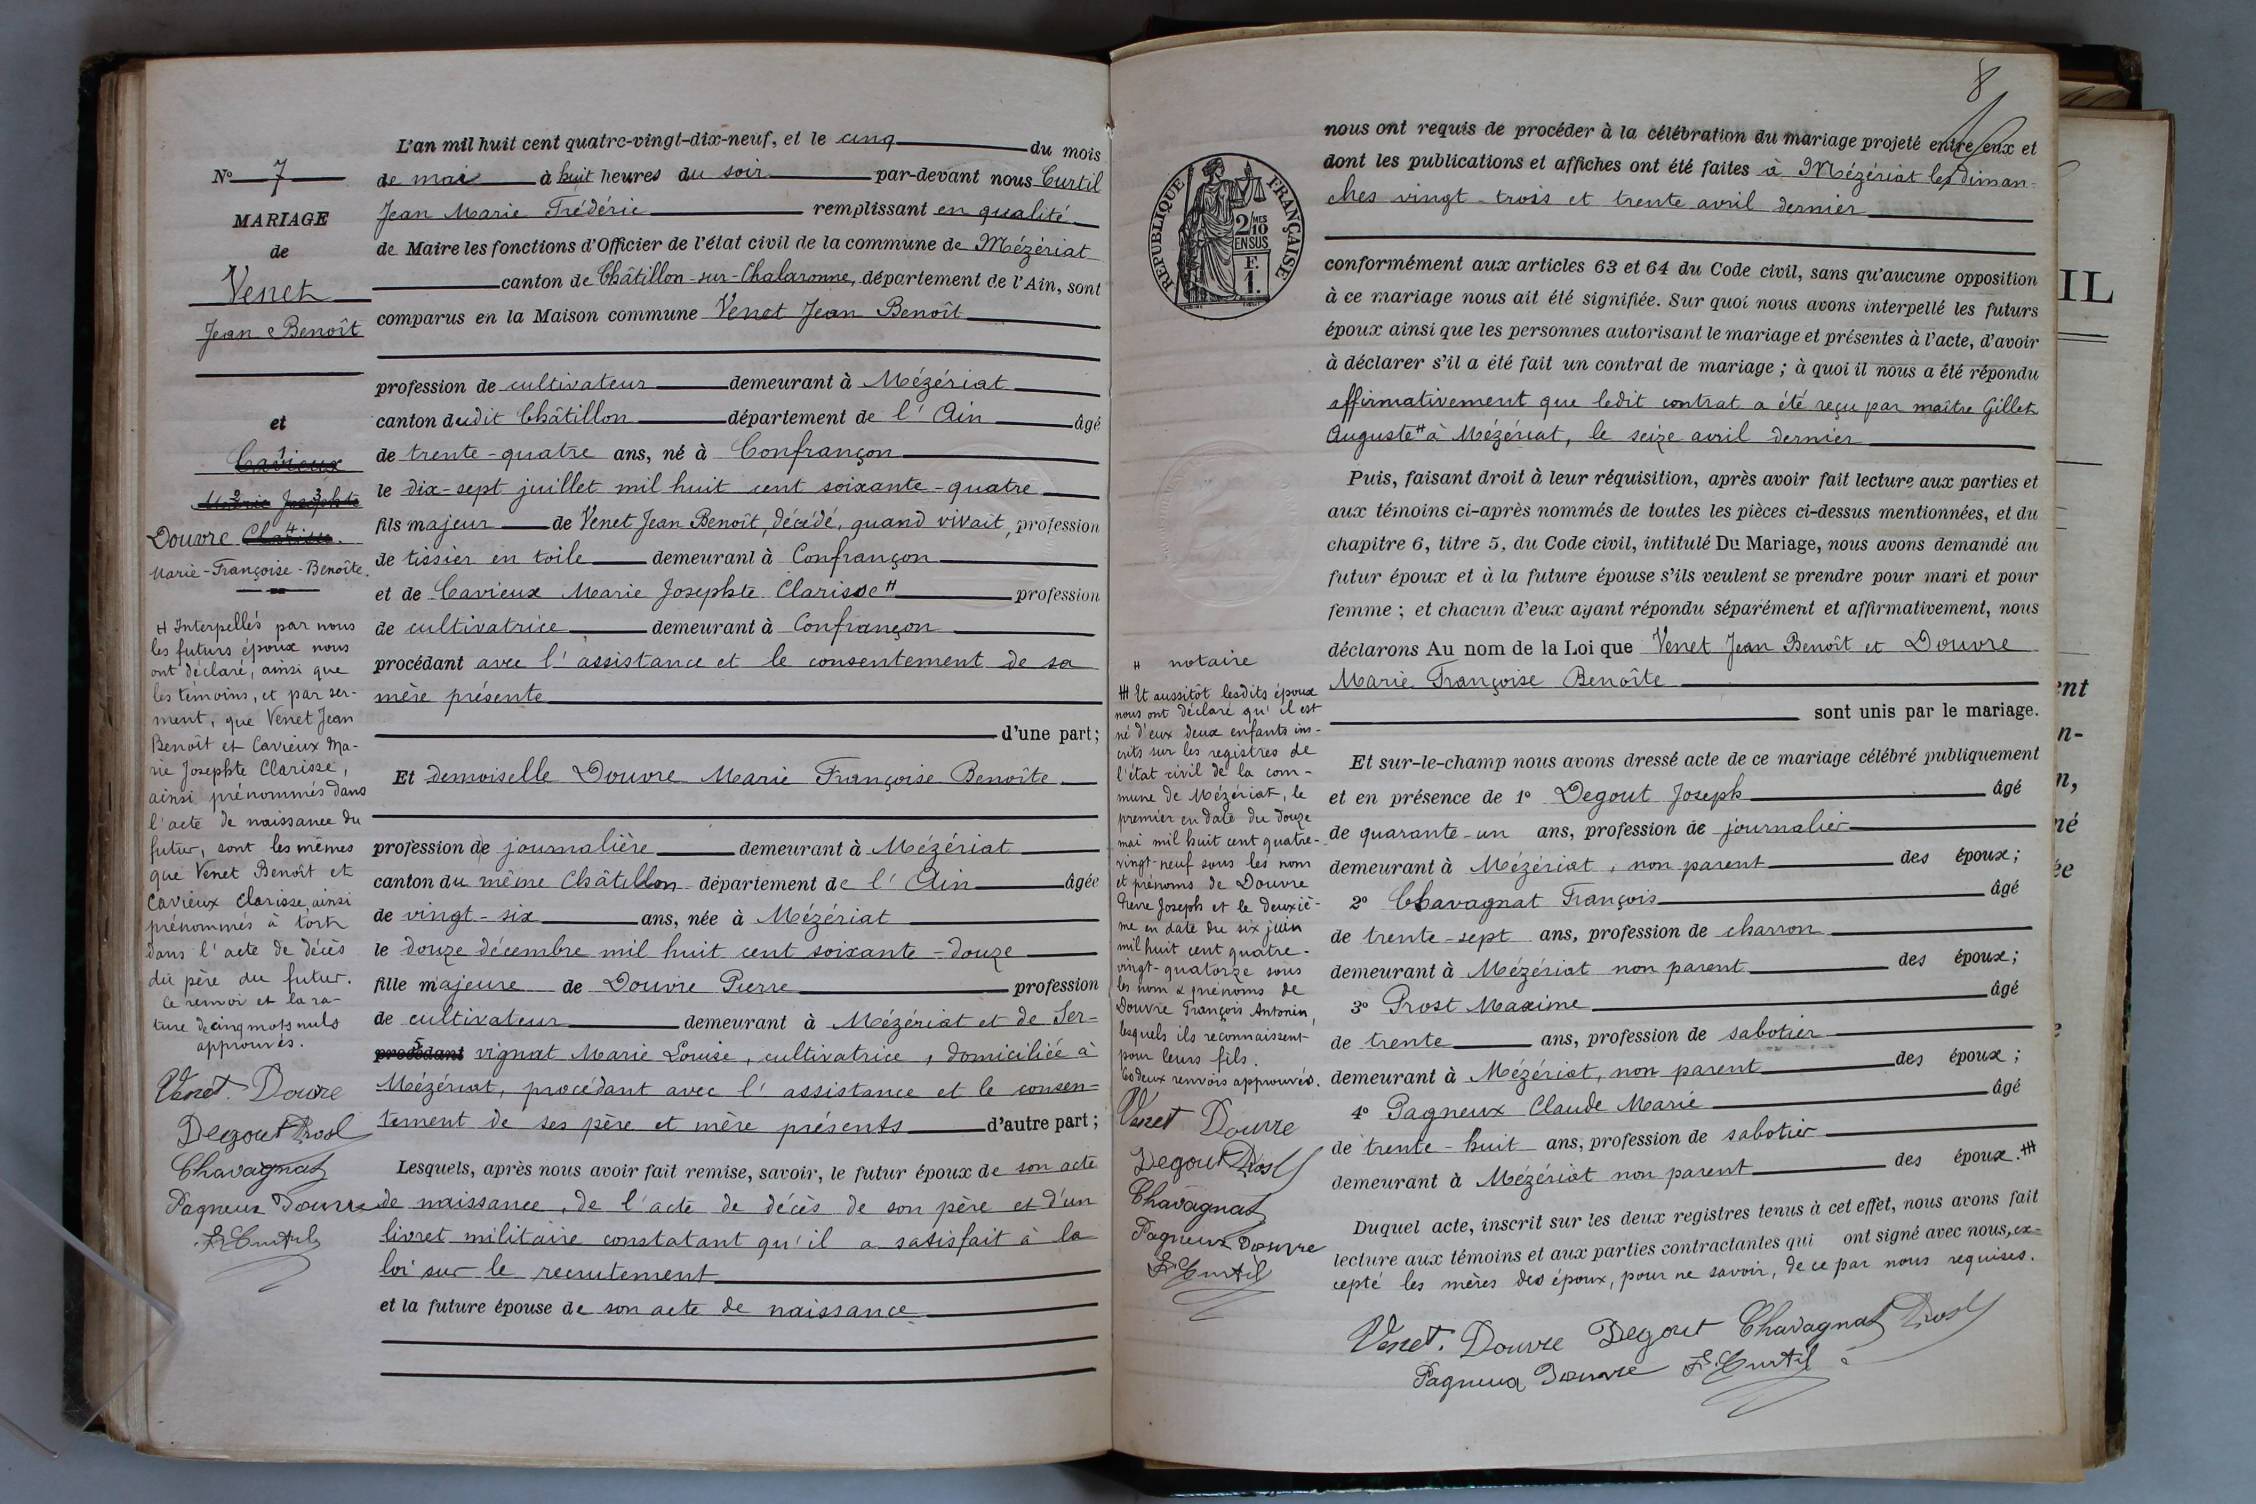 N° 7
MARIAGE
de
Venet
Jean Benoît
et
Cavieux
Marie Josephte
Douvre Clarisse.
Marie-Françoise-Benoîte.
H Interpellés par nous
les futurs époux nous
ont déclaré, ainsi que
les témoins, et par ser-
ment, que Venet Jean
Benoît et Cavieux Ma-
rie Josephte Clarisse,
ainsi prénommés dans
l'acte de naissance du
futur, sont les mêmes
que Venet Benoît et
Cavieux Clarisse, ainsi
prénommés à tort
dans l'acte de décès
du père du futur.
Ce renvoi et la ra-
ture de cinq mots nuls
approuvés.
Venet. Douvre
Degout Prost
Chavagnat
Pagneux Douvre
F. Curtil
L'an mil huit cent quatre-vingt-dix-neuf, et le cinq du mois
de mai à huit heures du soir par-devant nous Curtil
Jean Marie Frédéric remplissant en qualité
de Maire les fonctions d'Officier de l'état civil de la commune de Mézériat
canton de Châtillon-sur-Chalaronne, département de l'Ain, sont
comparus en la Maison commune Venet Jean Benoît
profession de cultivateur demeurant à Mézériat
canton dudit Châtillon département de l'Ain âgé
de trente-quatre ans, né à Confrançon
le dix-sept juillet mil huit cent soixante-quatre
fils majeur de Venet Jean Benoît, décédé, quand vivait, profession
de tissier en toile demeurant à Confrançon
et de Cavieux Marie Josephte Clarisse H profession
de cultivatrice demeurant à Confrançon
procédant avec l'assistance et le consentement de sa
mère présente
d'une part;
Et demoiselle Douvre Marie Françoise Benoîte
profession de journalière demeurant à Mézériat
canton du même Châtillon département de l'Ain âgée
de vingt-six ans, née à Mézériat
le douze décembre mil huit cent soixante-douze
fille majeure de Douvre Pierre profession
de cultivateur demeurant à Mézériat et de Ser-
procédant vignat Marie Louise, cultivatrice, domiciliée à
Mézériat, procédant avec l'assistance et le consen-
tement de ses père et mère présents d'autre part;
Lesquels, après nous avoir fait remise, savoir, le futur époux de son acte
de naissance, de l'acte de décès de son père et d'un
livret militaire constatant qu'il a satisfait à la
loi sur le recrutement
et la future épouse de son acte de naissance
8
REPUBLIQUE FRANÇAISE
2/10 MES
EN SUS
F.
1.
H notaire
HH Et aussitôt lesdits époux
nous ont déclaré qu'il est
né d'eux deux enfants ins-
crits sur les registres de
l'état civil de la com-
mune de Mézériat, le
premier en date du douze
mai mil huit cent quatre-
vingt-neuf sous les nom
et prénoms de Douvre
Pierre Joseph et le deuxiè-
me en date du six juin
mil huit cent quatre-
vingt-quatorze sous
les nom & prénoms de
Douvre François Antonin,
lesquels ils reconnaissent
pour leurs fils.
Ces deux renvois approuvés.
Venet Douvre
Degout Prost
Chavagnat
Pagneux Douvre
F. Curtil
nous ont requis de procéder à la célébration du mariage projeté entre eux et
dont les publications et affiches ont été faites à Mézériat les diman-
ches vingt-trois et trente avril dernier
conformément aux articles 63 et 64 du Code civil, sans qu'aucune opposition
à ce mariage nous ait été signifiée. Sur quoi nous avons interpellé les futurs
époux ainsi que les personnes autorisant le mariage et présentes à l'acte, d'avoir
à déclarer s'il a été fait un contrat de mariage ; à quoi il nous a été répondu
affirmativement que ledit contrat a été reçu par maître Gillet
Auguste H à Mézériat, le seize avril dernier
Puis, faisant droit à leur réquisition, après avoir fait lecture aux parties et
aux témoins ci-après nommés de toutes les pièces ci-dessus mentionnées, et du
chapitre 6, titre 5, du Code civil, intitulé Du Mariage, nous avons demandé au
futur époux et à la future épouse s'ils veulent se prendre pour mari et pour
femme ; et chacun d'eux ayant répondu séparément et affirmativement, nous
déclarons Au nom de la Loi que Venet Jean Benoît et Douvre
Marie Françoise Benoîte
sont unis par le mariage.
Et sur-le-champ nous avons dressé acte de ce mariage célébré publiquement
et en présence de 1° Degout Joseph âgé
de quarante-un ans, profession de journalier
demeurant à Mézériat, non parent des époux;
2° Chavagnat François âgé
de trente-sept ans, profession de charron
demeurant à Mézériat non parent des époux;
3° Prost Maxime âgé
de trente ans, profession de sabotier
demeurant à Mézériat, non parent des époux ;
4° Pagneux Claude Marie âgé
de trente-huit ans, profession de sabotier
demeurant à Mézériat non parent des époux. HH
Duquel acte, inscrit sur les deux registres tenus à cet effet, nous avons fait
lecture aux témoins et aux parties contractantes qui ont signé avec nous, ex-
cepté les mères des époux, pour ne savoir, de ce par nous requises.
Venet. Douvre Degout Chavagnat Prost
Pagneux Douvre F. Curtil
IL
ent
n-
n,
né
ée